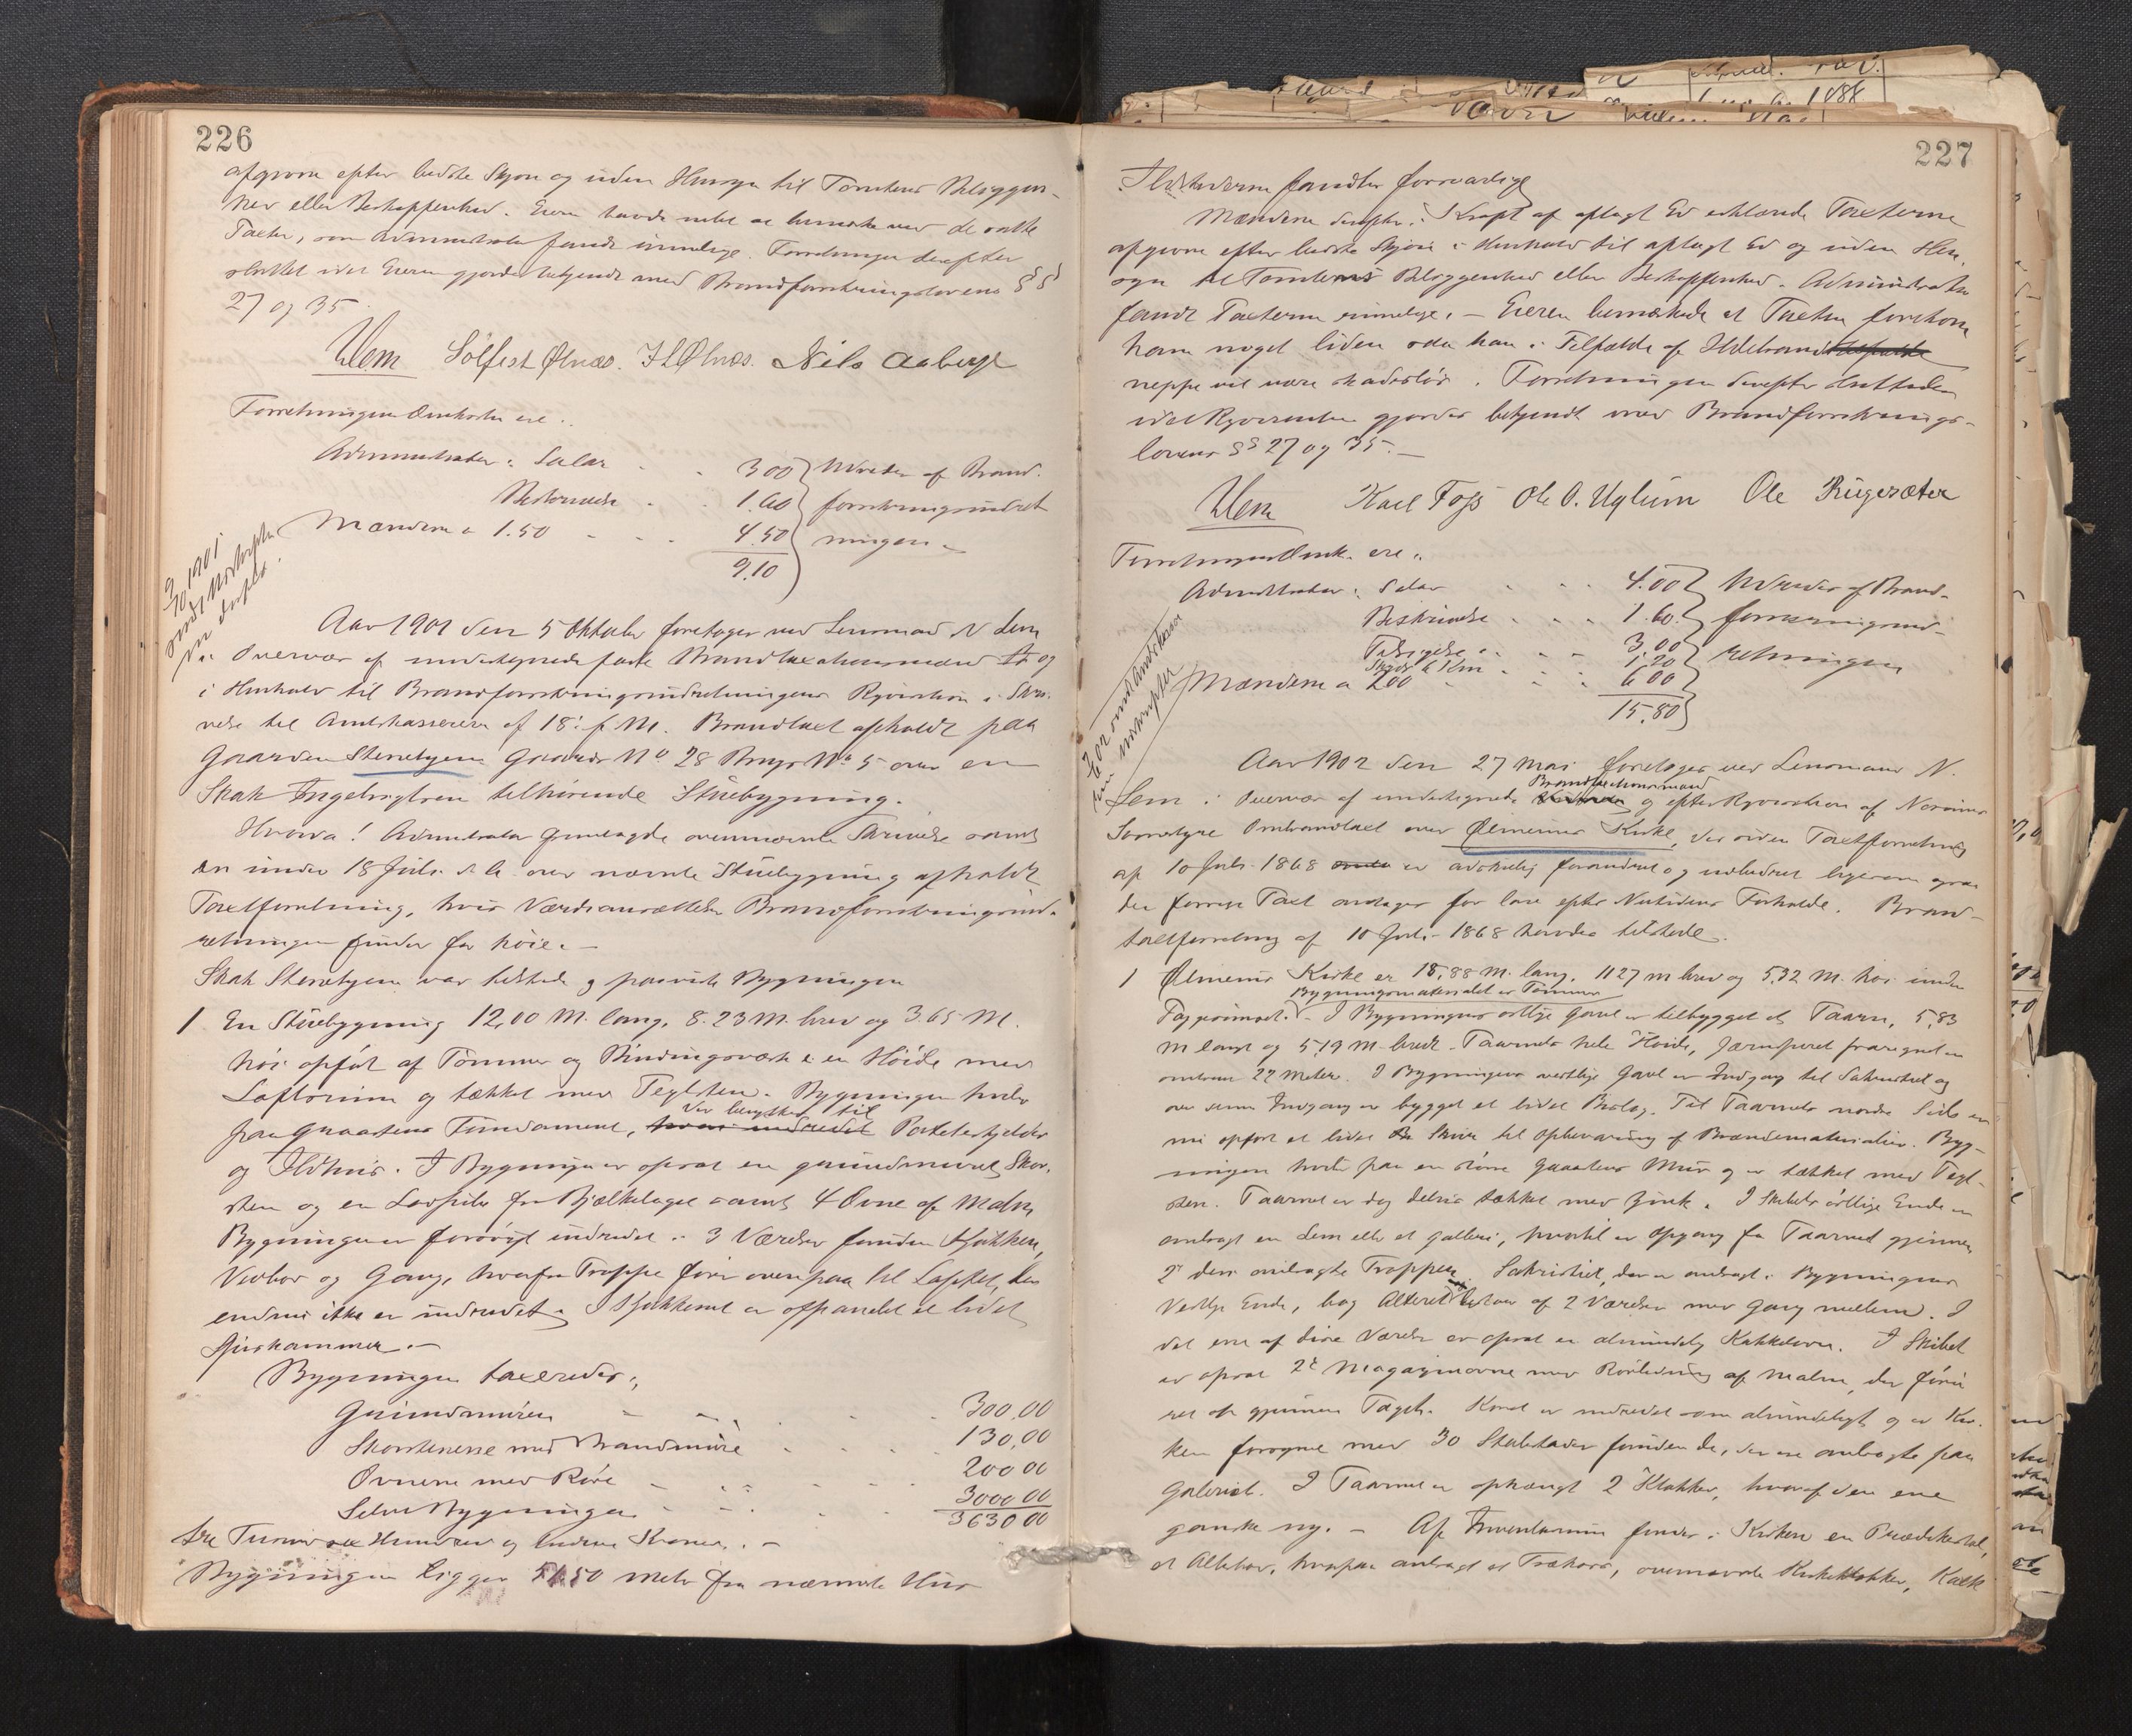 226
afgivne efter bedste Skjøn og uden Hensyn til Tomtens Beliggen-
hed eller Beskaffenhed. Eieren havde intet at bemærke ved de satte
Taxter, som Administrator fandt rimelige. Forretningen derefter
sluttet idet Eieren gjordes bekjendt med Brandforsikringslovens §§
27 og 35
NLem Sølfest Ølnæs. H Ølnæs. Nils Aaberge
Forretningens Omkostn. ere:
Administrator: Salær 3 00 Udredes af Brand-
Beskrivelse 1.60 forsikringsindret
Mændene a 1.50 4.50 ningen
9.10
1901
Aar 1901 den 5 Oktober foretoges ved Lensmand N Lem
i Overvær af undertegnede faste Brandtaxationsmænd og
i Henhold til Brandforsikringsindretningens Reqvisition i Skri-
velse til Amtskassereren af 18. f. M. Brandtaxt afholdt paa
Gaarden Stenehjem Gaards No 28 Brugs No 5 over en
Skak Ingebrigtsen tilhørende Stuebygning.
Hvorda! Administrator fremlagde ovennævnte Skrivelse samt
den under 18 Juli d. A. over nævnte Stuebygning afholdt
Taxtforretning, hvis Værdiansættelse Brandforsikringsind-
retningen finder for høie. —
Skak Stenehjem var tilstede og paaviste Bygningen
1 En Stuebygning 12,00 M. lang, 8.23 M. bred og 3.65 M.
høi opført af Tømmer og Bindingsværk i en Høide med
Loftsrum og tækket med Teglsten. Bygningen hviler
der benyttes til
paa Graastens Fundament, Potetkjelder
og Ildhus. I Bygningen er opsat en grundmuret Skor-
sten og en Lavpibe fra Bjælkelaget samt 4 Ovne af Malm
Bygningen er forøvrigt indredet: 3 Værelser foruden Kjøkken,
Vedbod og Gang, hvorfra Trappe fører ovenpaa til Loftet, der
endnu ikke er indredet. I Kjøkkenet er afpanelet et lidet
Spiskammer. —
Bygningen taxeredes:
Grundmuren 300,00
Skorstenene med Brandmure 130,00
Ovnene med Røre 200 00
Selve Bygningen 3000 00
3630 00
tre Tusinde sex Hundrede og tredive Kroner. —
Bygningen ligger 50 Meter fra nærmeste Hus
227
Ildstederne fandtes forsvarlige
Mændene derefter i Kraft af aflagt Ed erklærede Taxterne
afgivne efter bedste Skjøn i Henhold til aflagt Ed og uden Hen-
syn til Tomtens Beliggenhed eller Beskaffenhed. Administrator
fandt Taxterne rimelige. — Eieren bemærkede at Taxten forekom
ham noget liden saa han i Tilfælde af Ildebrand
neppe vil være skadesløs. Forretningen derefter sluttedes
idet Reqvirenten gjordes bekjendt med Brandforsikrings-
lovens §§ 27 og 35. —
NLem Karl Foss Ole O. Uglum Ole Rugesæter
Forretningens Omk. ere:
Administrator: Salær 4.00 Udredes af Brand-
Beskrivelse 1.60 forsikringsind-
3,00 retningen
1,20
Mændene a 200 6 00
15,80
Aar 1902 den 27 Mai foretoges ved Lensmand N.
Brandtaxtionsmænd
Lem i Overvær af undertegnede og efter Reqvisition af Norums
Sognestyre Ombrandtaxt over Ølmeims Kirke, der siden Taxtforretning
af 10 Juli 1868 er adskillig forandret og udbedret ligesom
den forrige Taxt antages for lav efter Nutidens Forholde. Brand-
taxtforretning af 10 Juli 1868 havdes tilstede.
1 Ølmeims Kirke er 18,88 M. lang, 11 27 m bred og 5,32 M. høi under
Bygningsmaterialet er Tømmer
I Bygningens østlige Gavl er tilbygget et Taarn, 5,83
m langt og 5,19 M bredt. Taarnets hele Høide, Jernspiret fraregnet er
omtrent 22 Meter. I Bygningens vestlige Gavl er Indgang til Sakristiet og
over denne Indgang er bygget et lidet Bislag. Til Taarnets nordre Side er
nu opført et lidet Skur til Opbevaring af Brændematerialier. Byg-
ningen hviler paa en større Graastens Mur og er tækket med Tegl-
sten. Taarnet er dog delvis tækket med Zink. I Skibets østlige Ende er
anbragt en Lem eller et Galleri, hvortil er Opgang fra Taarnet gjennem
2de deri anbragte Trapper. Sakristiet, der er anbragt i Bygningens
Vestlige Ende, bag Alteret bestaar af 2 Værelser med Gang mellem. I
det ene af disse Værelser er opsat en almindelig Kakkelovn. I Skibet
er opsat 2de Magazinovne med Rørledning af Malm, der fører
ret op gjennem Taget. Koret er indredet som almindeligt og er Kir-
ken forsynet med 30 Stolestader foruden de, der ere anbragte paa
Galeriet. I Taarnet er ophængt 2 Klokker, hvoraf den ene
ganske ny. — Af Inventarium findes i Kirken en Prædikestol,
et Alterbord, hvorpaa anbragt et Trækors, ovennævnte Kirkeklokker, Kalk